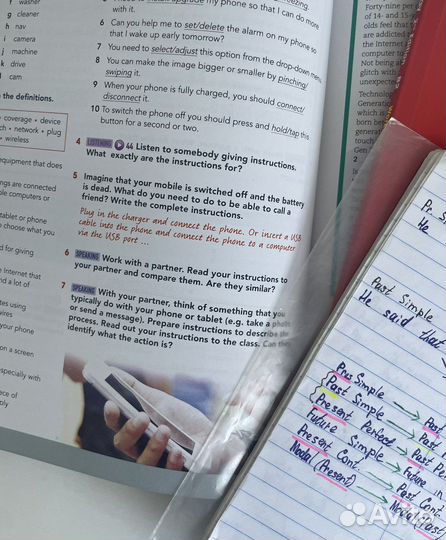 washer
g cleaner
h nav
i camera
j machine
k drive
l cam
the definitions.
coverage • device
• network • plug
• wireless
equipment that does
ngs are connected
ple computers or
tablet or phone
choose what you
d for giving
Internet that
nd a lot of
tes using
wires
your phone
on a screen
especially with
ece of
my phone so that I can do more
with it.
6 Can you help me to set/delete the alarm on my phone so
that I wake up early tomorrow?
7 You need to select/adjust this option from the drop-down menu.
8 You can make the image bigger or smaller by pinching/
swiping it.
9 When your phone is fully charged, you should connect/
disconnect it.
10 To switch the phone off you should press and hold/tap this
button for a second or two.
4 LISTENING 44 Listen to somebody giving instructions.
What exactly are the instructions for?
5 Imagine that your mobile is switched off and the battery
is dead. What do you need to do to be able to call a
friend? Write the complete instructions.
Plug in the charger and connect the phone. Or insert a USB
cable into the phone and connect the phone to a computer
via the USB port ...
6 SPEAKING Work with a partner. Read your instructions to
your partner and compare them. Are they similar?
7 SPEAKING With your partner, think of something that you
typically do with your phone or tablet (e.g. take a photo
or send a message). Prepare instructions to describe the
process. Read out your instructions to the class. Can they
identify what the action is?
Forty-nine per
of 14- and 15-
olds feel that
are addicted
the Internet
computer
Not being
glitch with
unexpected
Technolog
Generatio
which is
born
generat
touch
Gen
2
He
Past Simple
He said that
Pres Simple → Past
Past Simple → Past
Present Perfect → Past Pe
Future Simple → Future
Present Cont. → Past Cont
Modal (Present) → Modal (Past)
Avito